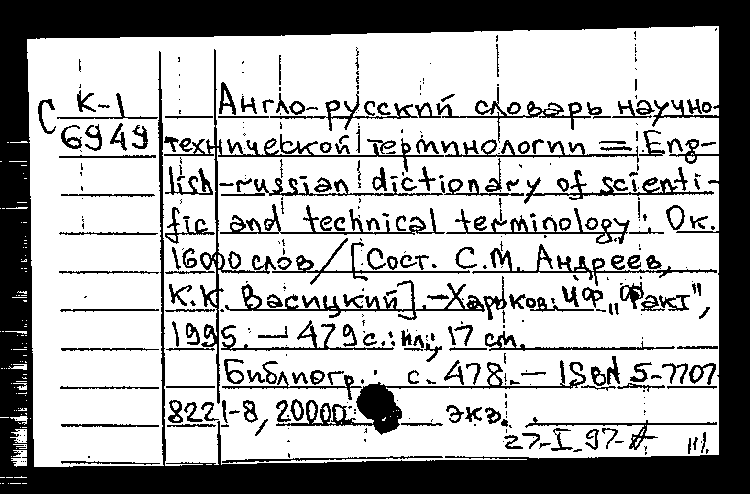 С К-1
6949
Англо-русский словарь научно-
технической терминологии = Eng-
lish-russian dictionary of scienti-
fic and technical terminology: Ок.
16000 слов / [Сост. С.М. Андреев,
К.К. Васицкий]. - Харьков: ИФ „Факт",
1995. - 479 с.: ил.; 17 cm.
Библиогр.: с. 478. - ISBN 5-7707-
8221-8, 20000 экз.
27-I-97-А